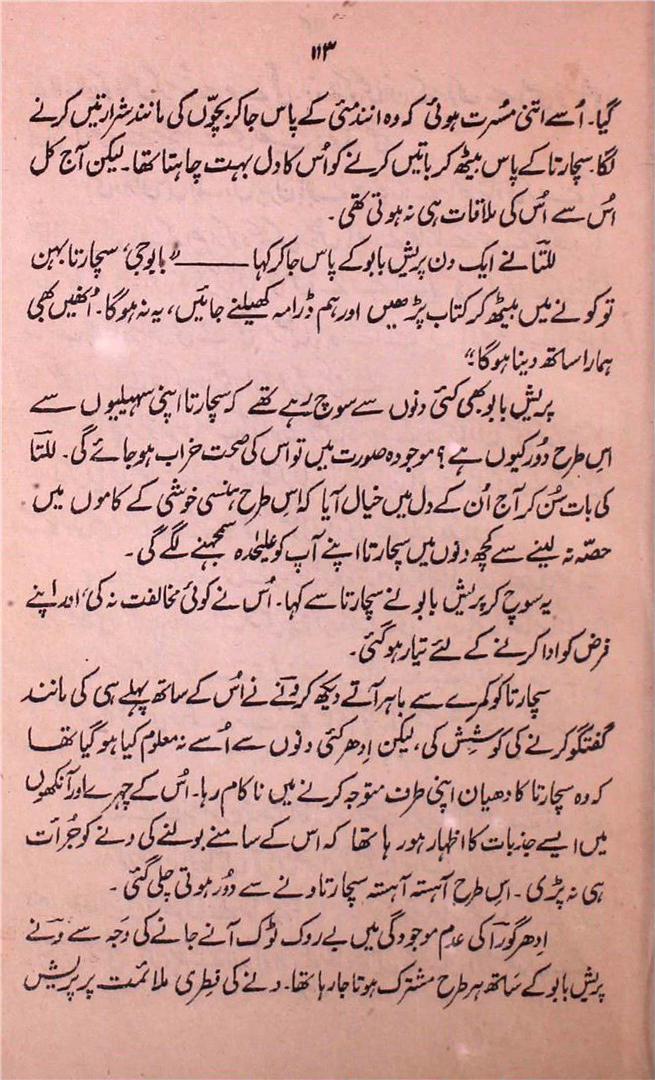 ۱۱۳
گیا۔ اُسے اتنی مسُرت ہوئی کہ وہ انند مئی کے پاس جا کر بچّوں کی مانند شرارتیں کرنے
لگا۔ سچارتا کے پاس بیٹھ کر باتیں کرنے کو اُس کا دل بہت چاہتا تھا۔ لیکن آج کل
اُس سے اُس کی ملاقات ہی نہ ہوتی تھی۔
للتا نے ایک دن پریش بابو کے پاس جا کر کہا ——— ”بابو جی، سچارتا بہن
تو کونے میں بیٹھ کر کتاب پڑھیں اور ہم ڈرامہ کھیلنے جائیں، یہ نہ ہوگا۔ اُنھیں بھی
ہمارا ساتھ دینا ہوگا؛“
پریش بابو بھی کئی دنوں سے سوچ رہے تھے کہ سچارتا اپنی سہیلیوں سے
اِس طرح دُور کیوں ہے؟ موجودہ صورت میں تو اس کی صحت خراب ہو جائے گی۔ للتا
کی بات سُن کر آج اُن کے دل میں خیال آیا کہ اِس طرح ہنسی خوشی کے کاموں میں
حصّہ نہ لینے سے کچھ دنوں میں سچارتا اپنے آپ کو علیٰحدہ سمجھنے لگے گی۔
یہ سوچ کر پریش بابو نے سچارتا سے کہا۔ اُس نے کوئی مخالفت نہ کی، اور اپنے
فرض کو ادا کرنے کے لئے تیار ہو گئی۔
سچارتا کو کمرے سے باہر آتے دیکھ کر ونے نے اُس کے ساتھ پہلے ہی کی مانند
گفتگو کرنے کی کوشش کی، لیکن اِدھر کئی دنوں سے اُسے نہ معلوم کیا ہو گیا تھا
کہ وہ سچارتا کا دھیان اپنی طرف متوجہ کرنے میں ناکام رہا۔ اُس کے چہرے اور آنکھوں
میں ایسے جذبات کا اظہار ہو رہا تھا کہ اس کے سامنے بولنے کی ونے کو جُرأت
ہی نہ پڑی۔ اِس طرح آہستہ آہستہ سچارتا ونے سے دُور ہوتی چلی گئی۔
اِدھر گورا کی عدم موجودگی میں بے روک ٹوک آنے جانے کی وَجہ سے ونے
پریش بابو کے سَاتھ ہر طرح مشترک ہوتا جا رہا تھا۔ ونے کی فِطری ملائمت پر پریش